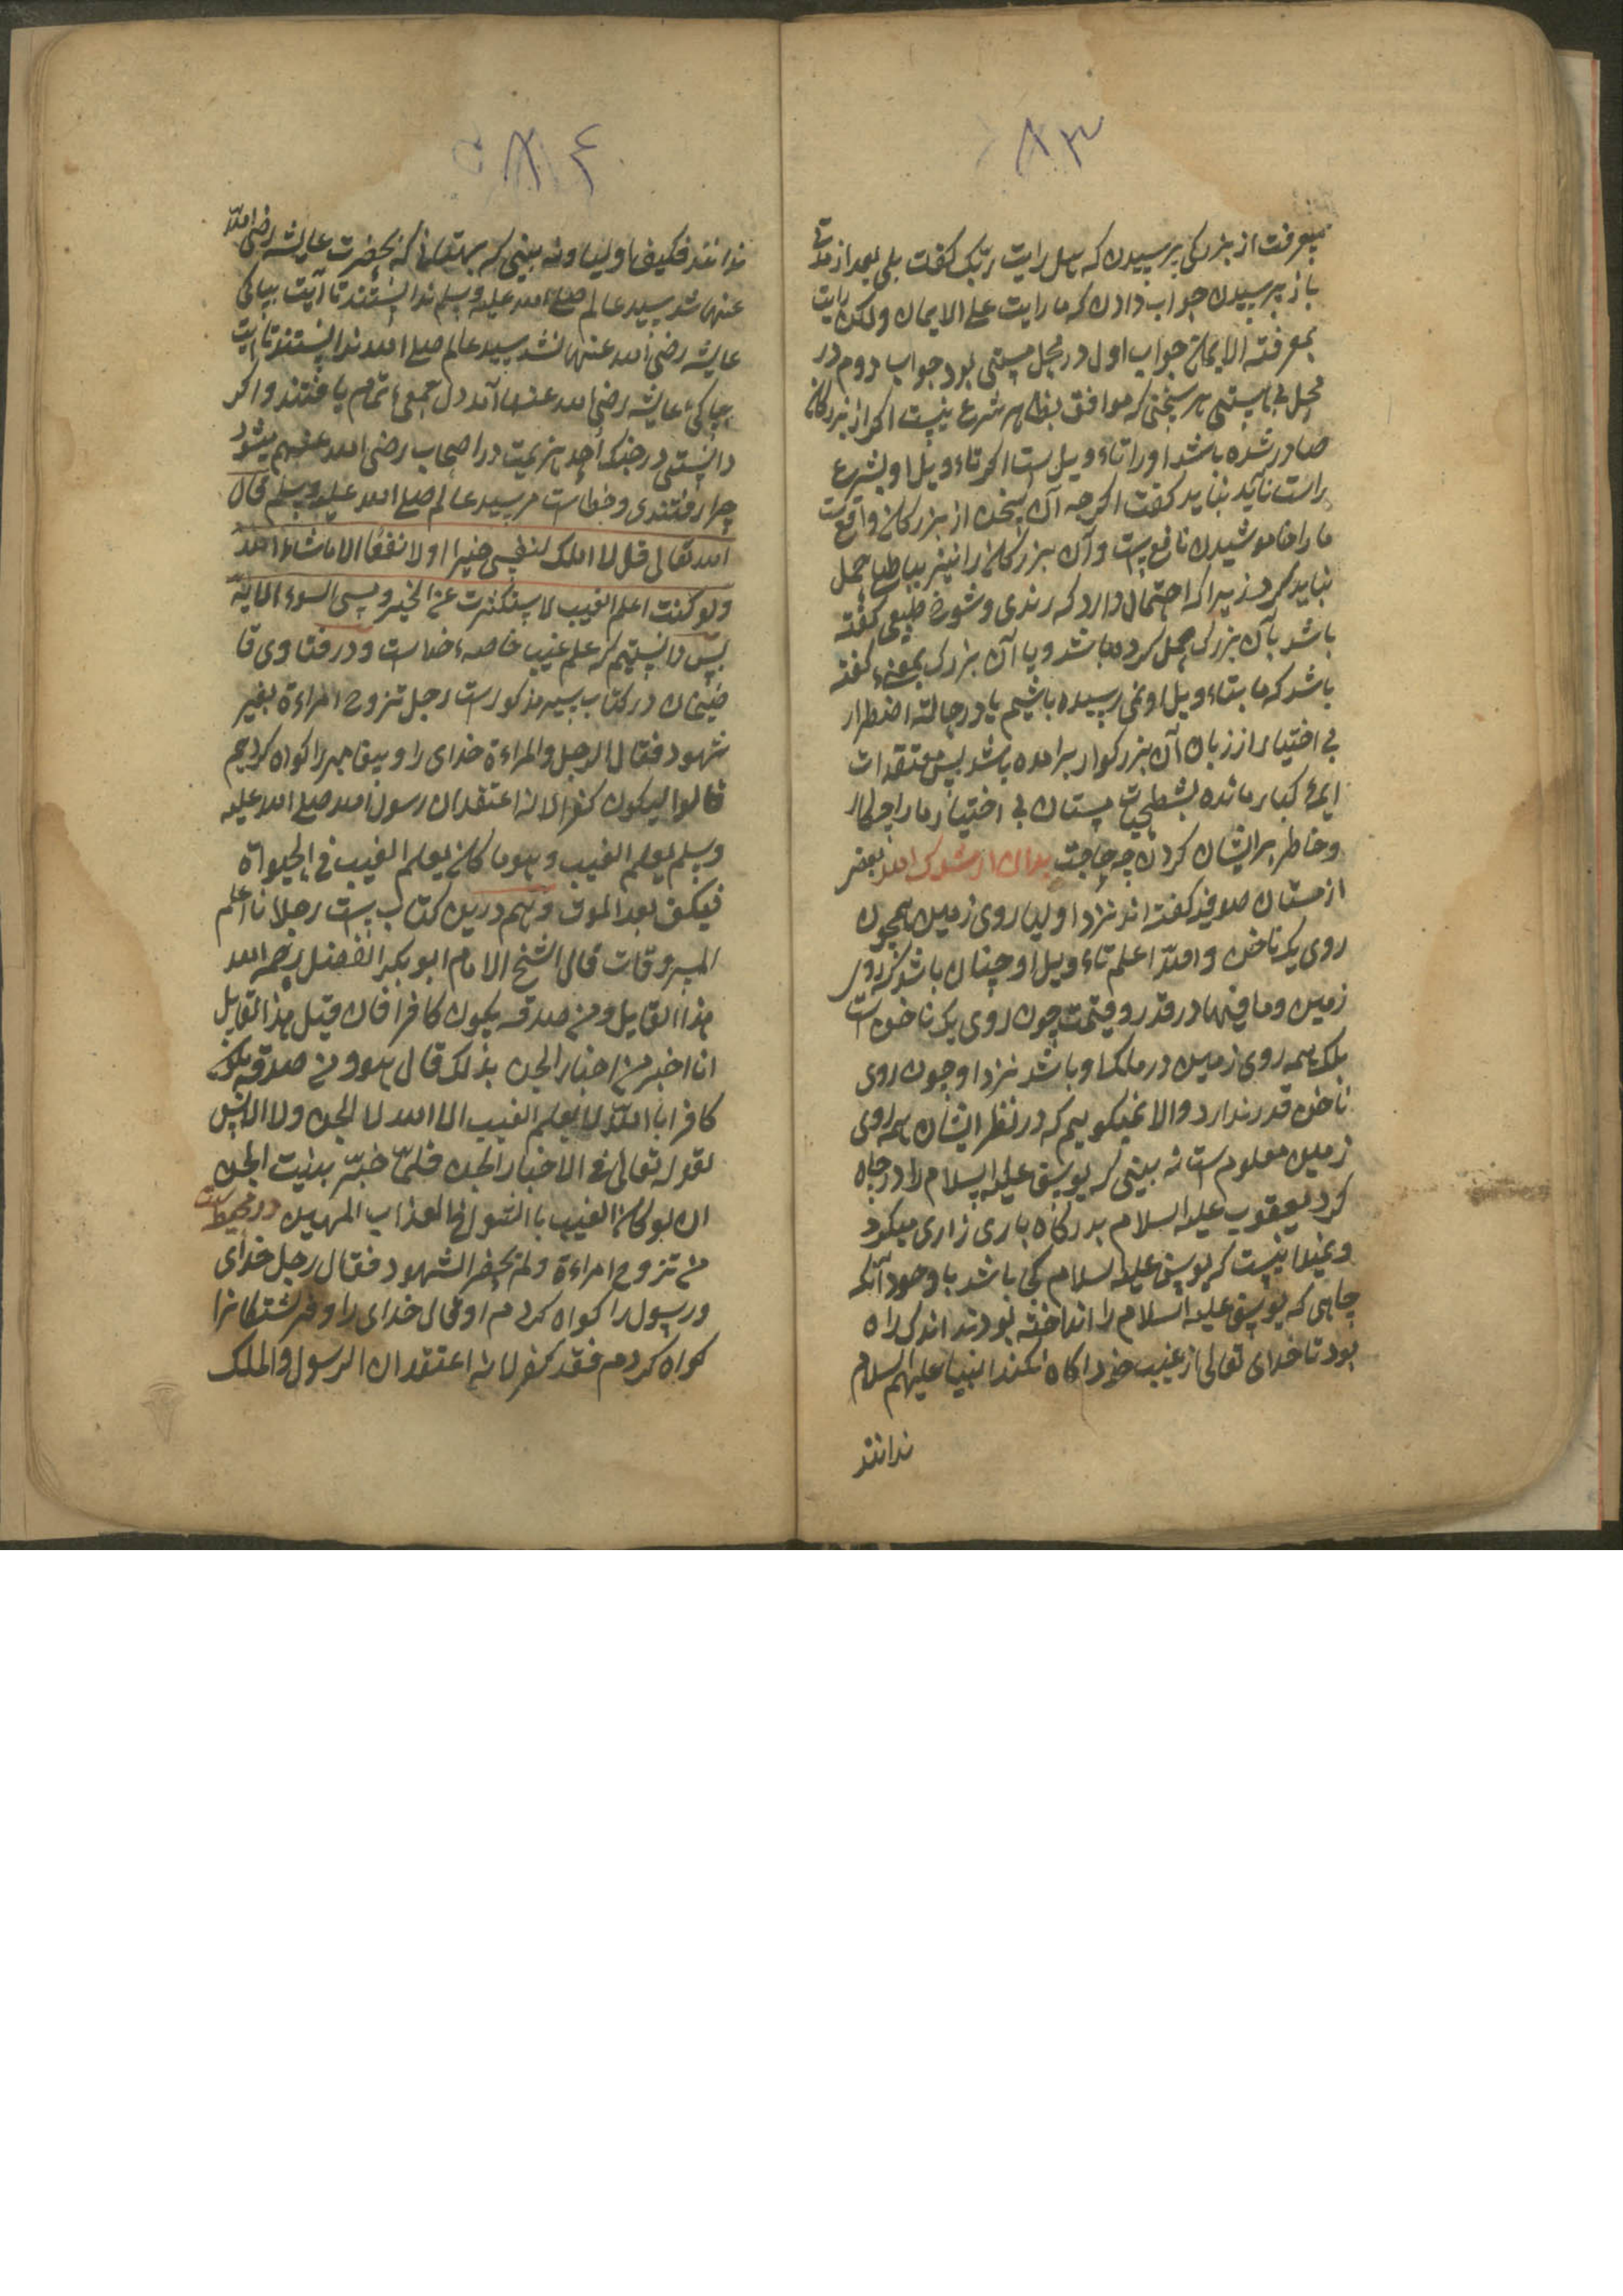 ٨٣
بمعرفت از بزرکی پرسیدن که هل رایت ربک کفت بلی بعد از مدتی
باز پرسیدن جواب دادن که ما رایت علی الایمان ولکن رایت
بمعرفته الایمان جواب اول در محل مستی بود جواب دوم در
محل بی مستی هر سخنی که موافق بظاهر شرع نیست اکر از بزرکان
صادر شده باشد اورا تاءویل ست اکر تاءویل او بشرع
راست نآید نباید کفت اکرچه آن سخن از بزرکان واقع ست
مارا خاموشیدن نافع ست و آن بزرکان را نیز بباطل حمل
نباید کرد زیراکه احتمال دارد که رندی و شوره طبعی کفته
باشد بآن بزرک حمل کرده باشد و یا آن بزرک بمعنیء کفته
باشد که ما بتاءویل او نمی رسیده باشیم یا در حالته اضطرار
بی اختیار از زبان آن بزرکوار برامده باشد پس معتقدات
ایمهء کبار مانده بشطحیات مستان بی اختیار مارا چه کار
و خاطر پرایشان کردن چه حاجت بدان ارشدک الله بعضی
از مستان صوفیه کفته اند نزد اولیا روی زمین همچون
روی یک ناخن والله اعلم تاءویل او چنان باشد که روی
زمین و مافیها در قدر و قیمت چون روی یک ناخن است
بلک همه روی زمین در ملک او باشد نزد او چون روی
ناخن قدر ندارد والا نمیکوییم که در نظر ایشان همه روی
زمین معلوم ست نه بینی که یوسف علیه السلام را در چاه
کرد یعقوب علیه السلام بدرکاه باری زاری میکرد
و نمیدانیست که یوسف علیه السلام کی باشد با وجود آنکه
چاهی که یوسف علیه السلام را انداخته بودند اندک راه
بود تا خدای تعالی از غیب خود آکاه نکند انبیا علیهم السلام
ندانند
٨٤
ندانند فکیف اولیا و نه بینی که بهتان که بحضرت عایشه رضی الله
عنها شد سید عالم صلی الله علیه وسلم ندانستند تا آیت بپاکی
عایشه رضی الله عنها نشد سید عالم صلی الله ندانستند تا آیت
بپاکیء عایشه رضی الله عنها آمد دل جمعیء تمام یافتند و اکر
دانستی در جنک احد هزیمت در اصحاب رضی الله عنهم میشود
چرا رفتندی و خطاست مر سید عالم صلی الله علیه وسلم قال
الله تعالی قل لا املک لنفسی ضیرا اولا نفعا الا ماشاء الله
ولو کنت اعلم الغیب لاستکثرت من الخیر و مسی السوء الایة
پس دانستیم که علم غیب خاصهء خداست و در فتاوی قا
ضیخان در کتاب سیر مذکور است رجل تزوج امراءة بغیر
شهود فقال الرجل والمراءة خدای را و پیغامبر را کواه کردیم
قالوا لیکون کفرا لانه اعتقد ان رسول الله صلی الله علیه
وسلم یعلم الغیب و هو ما کان یعلم الغیب فی الحیواة
فیکف بعد الموت و هم درین کتاب ست رجل انا اعلم
المسروقات قال الشخ الامام ابو بکر الفضل رحمه الله
هذا القایل و من صدقه یکون کافرا فان قیل هذا القایل
انا اخبر من اخبار الجن بذلک قال هو و من صدقه یکون
کافرا باالله لا یعلم الغیب الا الله لا الجن ولا الانس
لقوله تعالی فی الاخبار الجن فلما خر بینت الجن
ان لو کان الغیب با الشو فی العذاب المهین در محیط ست
من تزوج امراءة ولم یحضر الشهود فقال رجل خدای
و رسول را کواه کردم او قال خدای را و فرشتکانرا
کواه کردم فقد کفر لانه اعتقد ان الرسول و الملک